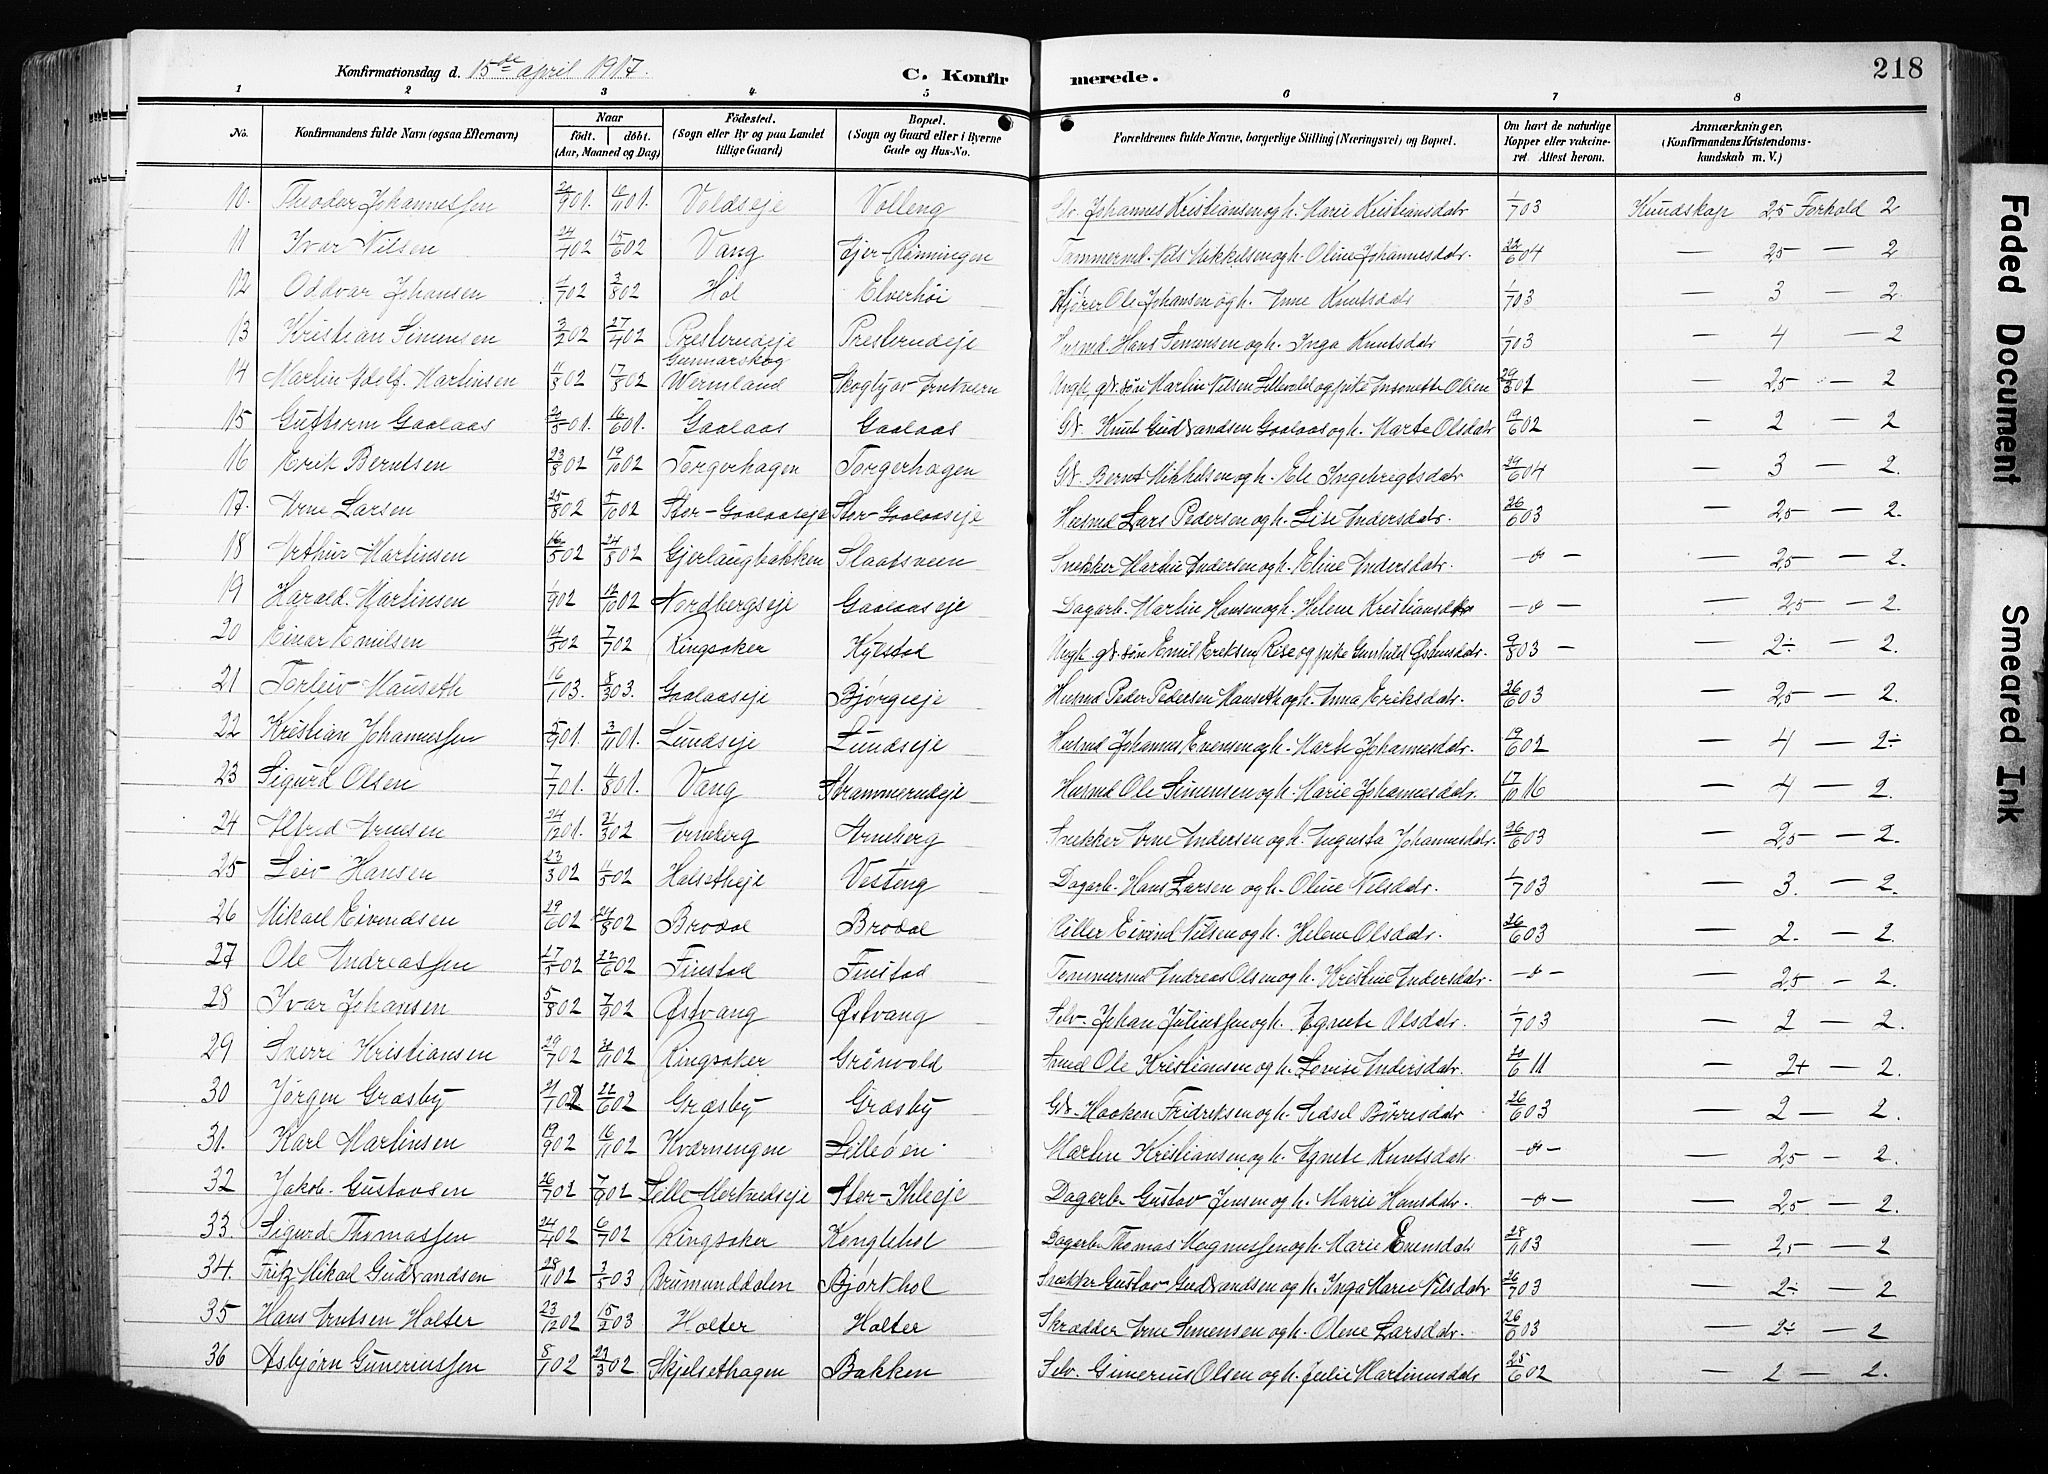 Konfirmationsdag d. 15de april 1917. C. Konfirmerede. 218
1 2 3 4 5 6 7 8
No. Konfirmandens fulde Navn (ogsaa Efternavn) Naar født. døbt. (Aar, Maaned og Dag) Fødested. (Sogn eller By og paa Landet tillige Gaard) Bopæl. (Sogn og Gaard eller i Byerne Gade og Hus-No. Forældrenes fulde Navne, borgerlige Stilling (Næringsvei) og Bopæl. Om havt de naturlige Kopper eller vakcineret. Attest herom. Anmærkninger, (Konfirmandens Kristendomskundskab m. V.)
10. Theodor Johannessen 01. 01. Voldseje Volleng Johannes Kristiansen og h. Marie Kristiansdatr 1/7 03 Kundskap 2,5 Forhold 2
11 Ivar Nilsen 24/4 02 15/6 02 Vang Ejer-Rønningen Tømmermd. Nils Mikkelsen og h. Oline Johannesdatr. 22/6 04 — 2,5 — 2
12 Oddvar Johansen 4/7 02 3/8 02 Hol Elverhöi Kjører Ole Johansen og h. Anne Knutsdatr 1/7 03 — 3 — 2.
13 Kristian Simensen 3/2 02 27/4 02 Presterudeje Presterudeje Husmd. Hans Simensen og h. Inga Knutsdatr 1/7 03 — 4 — 2
14 Martin Adolf. Martinsen 11/3 02 17/8 02 Gunnarskog Wermland Skogly av Arnkvern Ungk. gd. søn Martin Nilsen og pike Antonette Olsen 29/8 02 — 2,5 — 2
15 Guttorm Gaalaas 01. 16/6 01. Gaalaas Gaalaas Gd. Knut Gudbrandsen Gaalaas og h. Marte Olsdatr 19/6 02 — 2 — 2
16 Erik Berntsen 23/8 02 19/10 02 Torgerhagen Torgerhagen Gd. Bernt Mikkelsen og h. Eli Ingebrigtsdatr 29/6 04 — 3 — 2.
17. Arne Larsen 25/8 02 5/10 02 Stor-Gaalaaseje Stor-Gaalaaseje Husmd Lars Pedersen og h. Lise Andersdatr. 26/6 03 — 2,5 — 2.
18 Arthur Martinsen 16/5 02 24/8 02 Gjerlaugbakken Slaatsveen Snekker Martin Andersen og h. Eline Andersdatr. — — 2,5 — 2.
19 Harald. Martinsen 1/9 02 12/10 02 Nordbergseje Gaalaaseje Dagarb. Martin Hansen og h. Helene Kristiansdtr — — 2,5 — 2.
20 Einar Emilsen 14/5 02 7/7 02 Ringsaker Kylstad Ungk. gd. søn Emil Eriksen Rise og pike Gunhild Østensdatr. 9/8 03 — 2÷ — 2.
21 Torleiv Hauseth 16/1 03. 8/3 03. Gaalaaseje Bjørgeeje Husmd Peder Pedersen Hauseth og h. Anna Eriksdatr. 26/6 03 — 2,5 — 2.
22 Kristian Johannessen 5/9 01. 3/11 01. Lundseje Lundseje Husmd Johannes Evensen og h. Marte Johannesdatr. 19/6 02 — 4 — 2÷
23 Sigurd Olsen 7/7 01. 4/8 01. Vang Strammerudeje Husmd Ole Simensen og h. Marie Johannesdatr. 17/10 16 — 4 — 2.
24 Alfred Arnesen 24/12 01. 2/3 02 Arneberg Arneberg Snekker Arne Andersen og h. Augusta Johannesdatr. 26/6 03 — 2,5 — 2.
25 Leiv Hansen 23/3 02 11/5 02 Halsetheje Vesteng Dagarb. Hans Larsen og h. Oline Nilsdatr. 1/7 03 — 3. — 2.
26 Mikael Eivindsen 29/6 02 24/8 02 Brodal Brodal Møller Eivind Nilsen og h. Helene Olsdatr. 26/6 03 — 2. — 2.
27 Ole Andreassen 17/5 02 22/6 02 Finstad Finstad Tømmermd Andreas Olsen og h. Kristine Andersdatr. — — 2,5 — 2.
28 Ivar Johansen 5/8 02 7/9 02 Østvang Østvang Selv. Johan Juliussen og h. Agnete Olsdatr. 1/7 03 — 2 — 2.
29 Sverre Kristiansen 29/7 02 11 02 Ringsaker Grönvold Ole Kristiansen og h. Lovise Andersdatr. 6 11 — 2+ — 2.
30 Jørgen Græsby 21/1 02 22/6 02 Græsby Græsby Gd. Haaken Fridriksen og h. Sidsel Börresdatr 26/6 03 — 2 — 2.
31. Karl Martinsen 19/9 02 16/11 02 Kværnengen Lilleöen. Martin Kristiansen og h. Agnete Knutsdatr. — — 2,5 — 2.
32 Jakob. Gustavsen 26/7 02 7/9 02 Stor-Ihleeje Dagarb. Gustav Jensen og h. Marie Hansdatr. — — 2,5 — 2.
33. Sigurd Thomassen 24/4 02 6/7 02 Ringsaker Konglehol Dagarb. Thomas Magnussen og h. Marie Evensdatr 28/11 03 — 2,5 — 2
34. Fritz Mikael Gudbrandsen 28/11 02 3/5 03 Brumunddalen Bjørkhol Snekker Gustav Gudbrandsen og h. Inga Marie Nilsdatr 26/7 03 — 2÷ — 2
35 Hans Arntsen Holter 23/12 02 15/2 03 Holter Holter Skrædder Arne Simensen og h. Oline Larsdatr. 26/6 03 — 2÷ — 2
36 Asbjørn Guneriussen 8/1 02 23/3 02 Skjelsethagen Bakken Selv. Gunerius Olsen og h. Julie Martinusdatr 25/6 02 — 2 — 2.
Faded Document
Smeared Ink